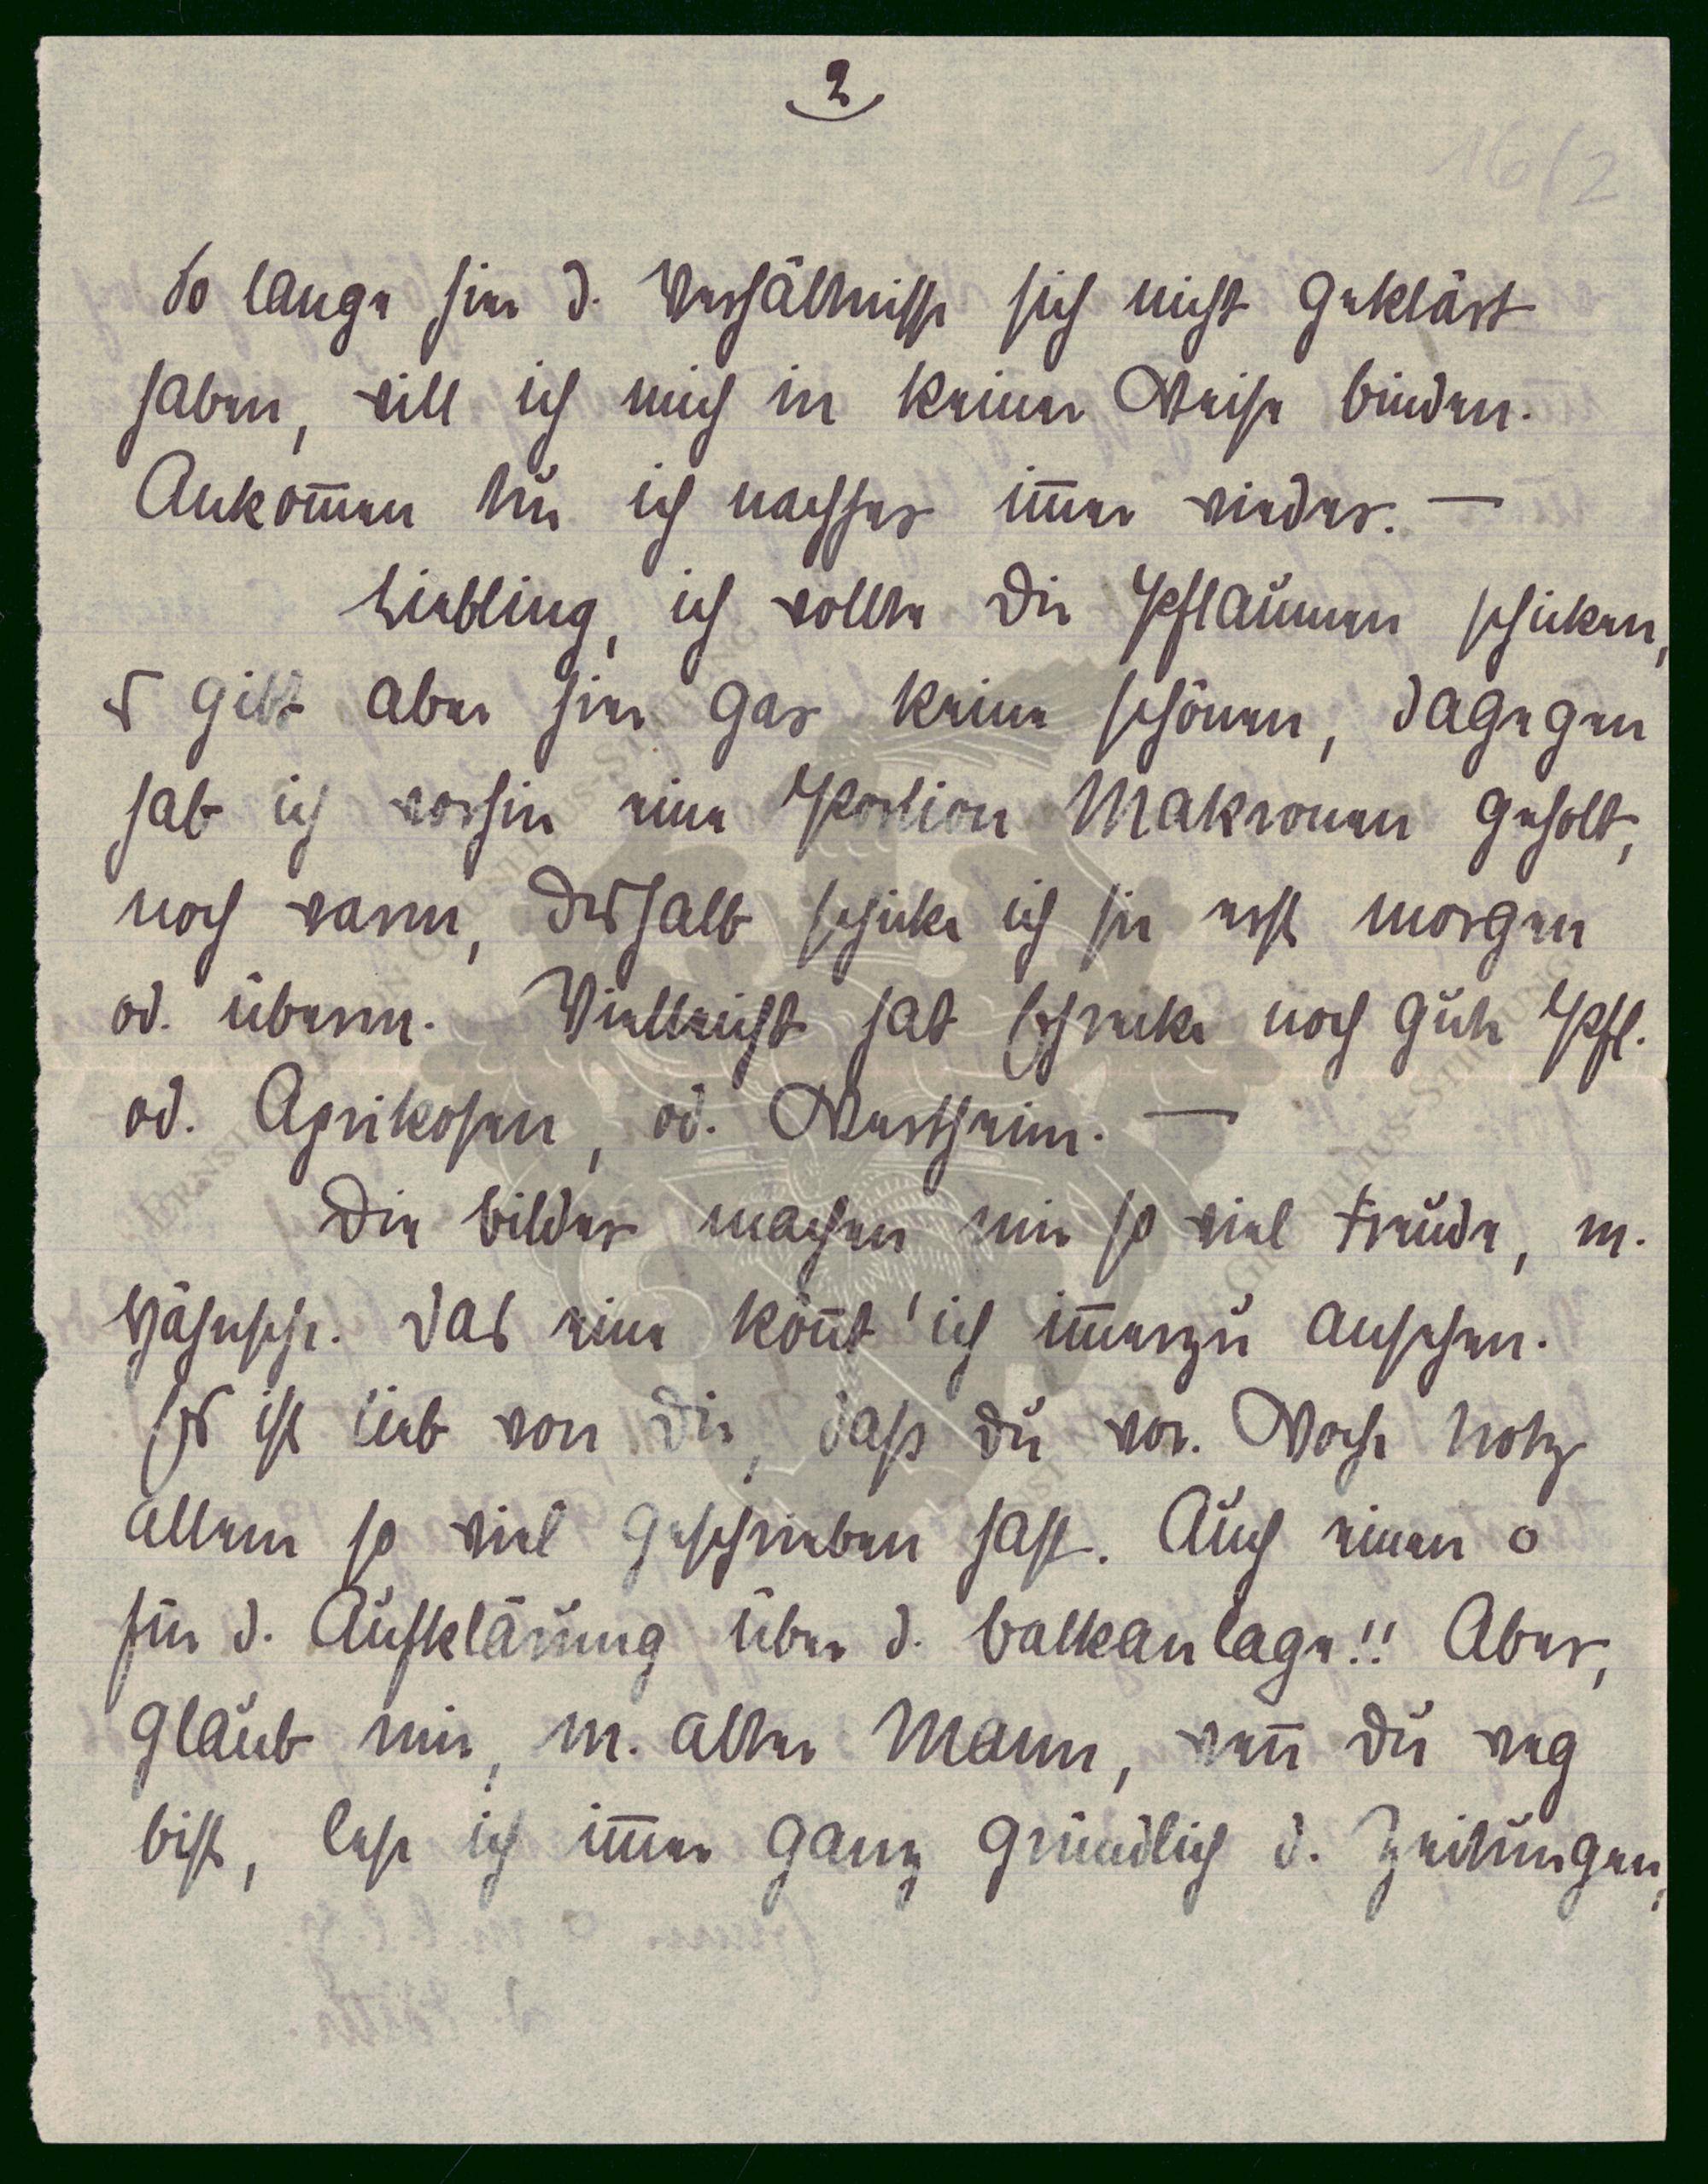 2
16/2
So lange hier d. Verhältnisse sich nicht geklärt
haben, will ich mich in keiner Weise binden.
Ankom̅en tu ich nachher im̅er wieder. —
Liebling, ich wollte Dir Pflaumen schicken,
es gibt aber hier gar keine schönen, dagegen
hab ich vorhin eine Portion Makronen geholt,
noch warm, deshalb schicke ich sie erst morgen
od. überm. Vielleicht hat Schrecke noch gute Pfl.
od. Aprikosen, od. Wertheim. —
Die Bilder machen mir so viel Freude, m.
Hähnsche. Das eine kön̅t' ich im̅erzu ansehen.
Es ist lieb von Dir, dass Du vor. Woche trotz
allem so viel geschrieben hast. Auch einen o
für d. Aufklärung über d. Balkanlage!! Aber,
glaub mir, m. alter Mann, wen̅ Du weg
bist, lese ich im̅er ganz gründlich d. Zeitungen,